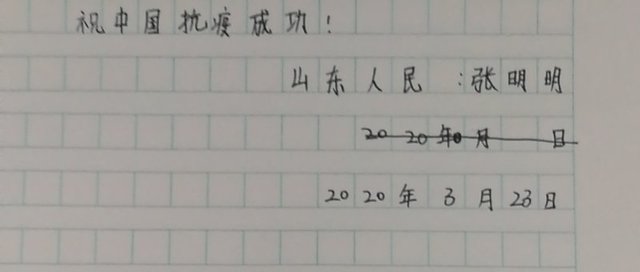 祝中国抗疫成功！
山东人民：张明明
2020年 月 日
2020年3月23日